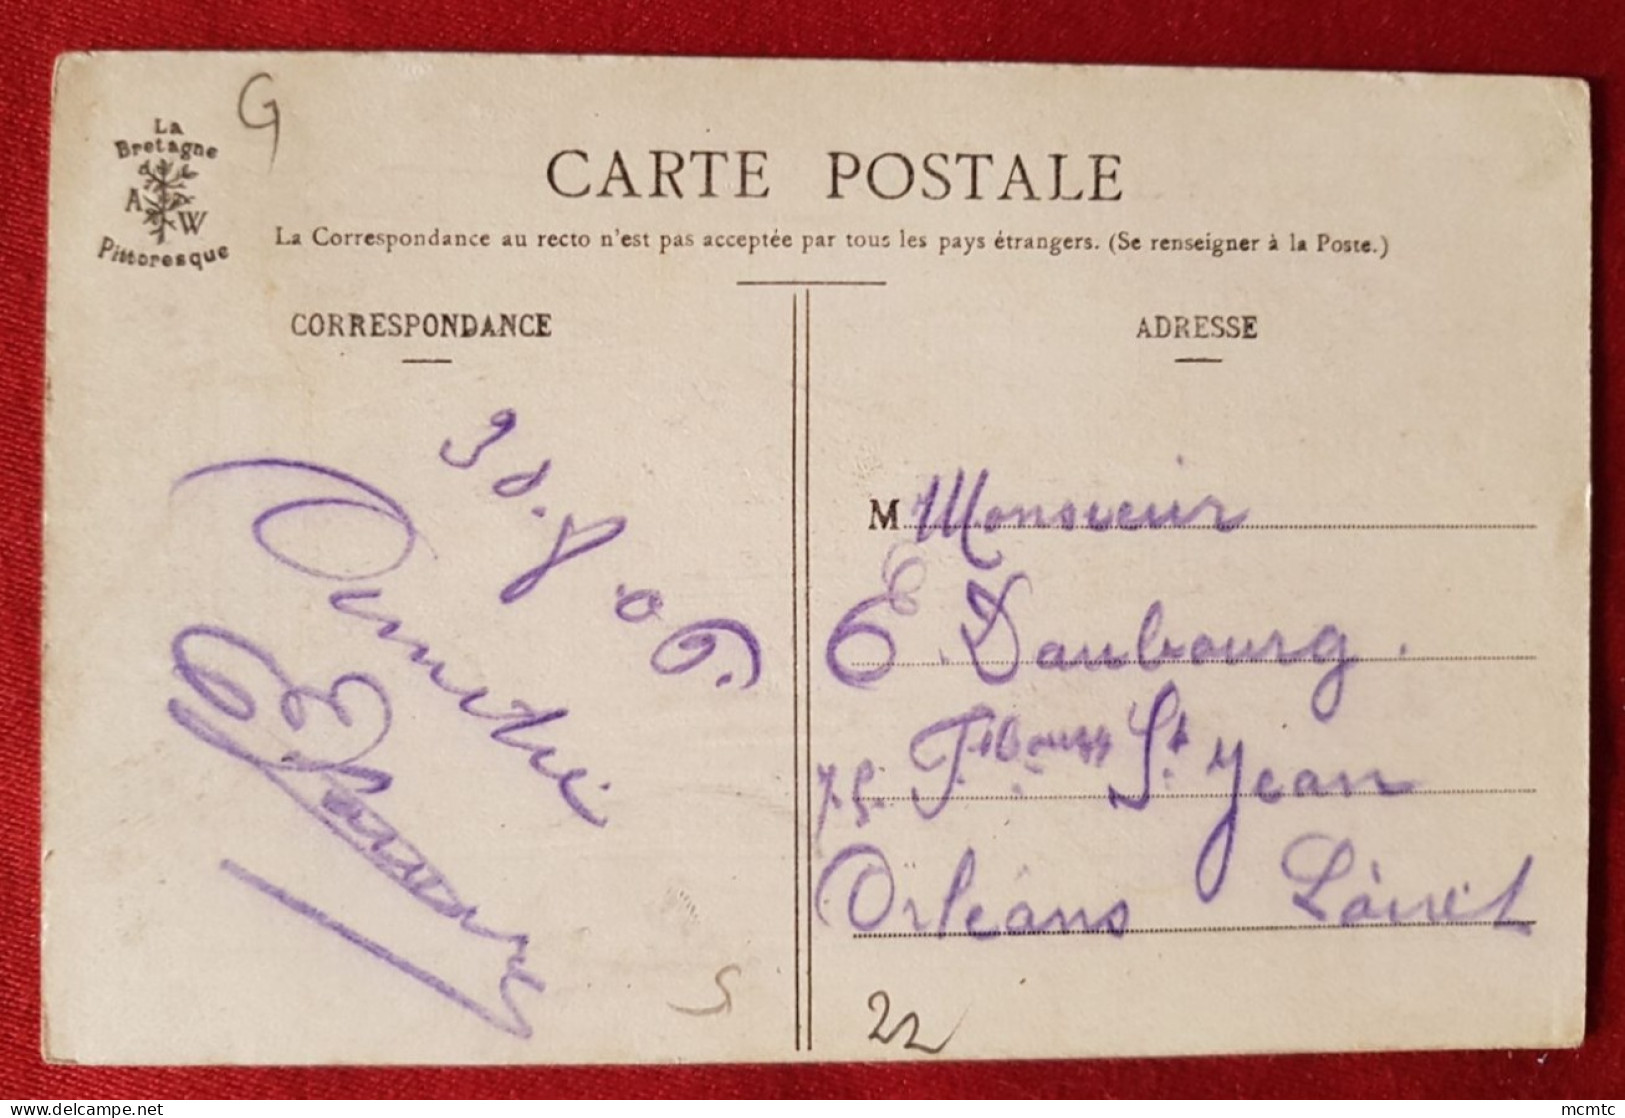 La
Bretagne
A W
Pittoresque
G
CARTE POSTALE
La Correspondance au recto n'est pas acceptée par tous les pays étrangers. (Se renseigner à la Poste.)
CORRESPONDANCE
30.8.06.
Amitié
ADRESSE
M Monsieur
E. Daubourg.
75. Fbourg St Jean
Orléans Loiret
22
mcmtc